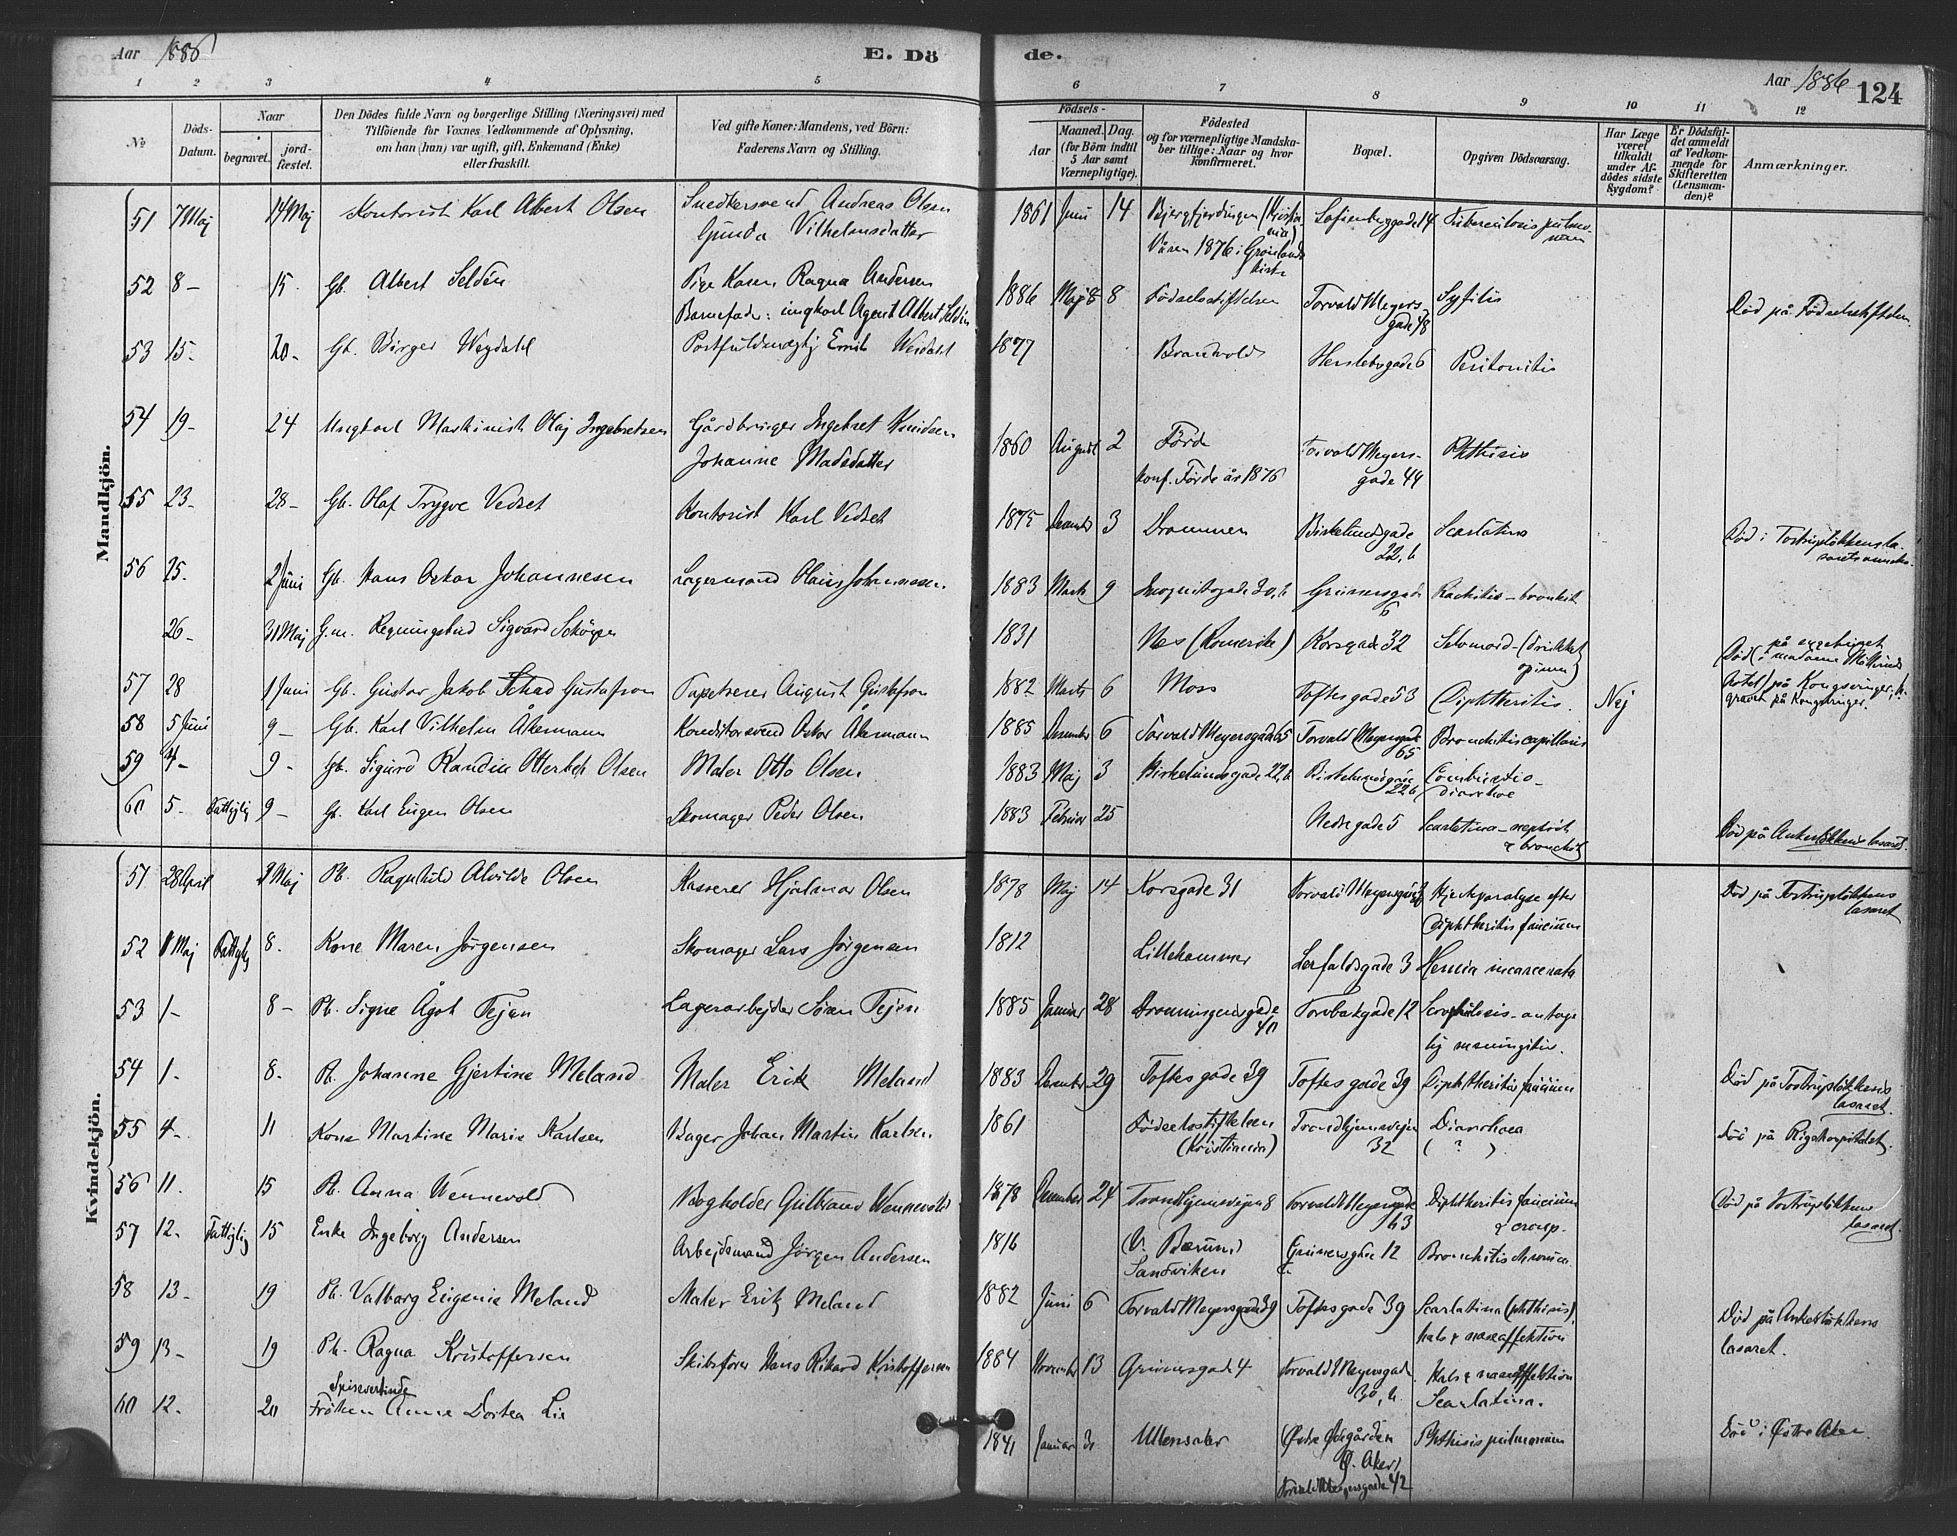 Aar 1886
E. Döde.
Aar 1886
124
1 2 3 4 5 6 7 8 9 10 11 12
No
Döds-Datum.
Naar
begravet.
jordfæstet.
Den Dödes fulde Navn og borgerlige Stilling (Næringsvei) med
Tilföiende for Voxnes Vedkommende af Oplysning,
om han (hun) var ugift, gift, Enkemand (Enke)
eller fraskilt.
Ved gifte Koner: Mandens, ved Börn:
Faderens Navn og Stilling.
Födsels-
Aar
Maaned. Dag.
(for Börn indtil
5 Aar samt
Værnepligtige).
Födested
og for værnepligtige Mandskaber tillige: Naar og hvor
konfirmeret.
Bopæl.
Opgiven Dödsaarsag.
Har Læge
været
tilkaldt
under Afdödes sidste
Sygdom?
Er Dödsfaldet anmeldt
af Vedkommende for
Skifteretten
(Lensmanden)?
Anmærkninger.
Mandkjön.
51 7 Maj 14 Maj Kontorist Karl Albert Olsen Snedkersvend Andreas Olsen 1861 Juni 14 Sofienberggade 14 Tuberculosis pulmonum
Gunda Vilhelmsdatter
Våren 1876 i Grønlands kirke
52 8 – 15. Gb. Albert Seldén Pige Karen Ragna Andersen 1886 Maj 8 Födselsstiftelsen Torvald Meyers gade 48 Syfilis Död på Födselsstiftelsen.
Barnefader: ungkarl Agent Albert Seldén
53 15. 20 – Gb. Birger Wegdahl Postfuldmægtig 1877 Brandvold Herslebsgade 6 Peritonitis
54 19 – 24 Ungkarl Maskinist Olaj Ingebretsen Gårdbruger Ingebret Knudsen 1860 August 2 Förde Torvald Meyers- gade 44 Phthisis
Johanne Madsdatter
konf. Förde år 1876
55 23 – 28 – Gb. Olaf Trygve Vedset Kontorist Karl Vedset 1875 December 3 Drammen Birkelundsgade 22, b Scarlatina
56 25. 2 Juni Gb. Hans Oskar Johannesen Lagermand Olaus Johannesen 1883 Marts 9 Grünersgade 6 Rachitis – bronkit
26 – 31 Maj G.m. Regningsbud Sigvard 1831 Nes (Romerike) Korsgade 32 Selvmord – (drukket opium)
57 28 1 Juni Gb. Gustav Jakob Gustafson Tapetserer August Gustafson 1882 Marts 6 Moss Toftesgade 53 Diphtheritis. Nej
58 5 Juni 9 – Gb. Karl Vilhelm Åkermann Konditorsvend Oskar Åkermann 1885 December 6 Torvald Meyersgade 65 Torvald Meyersgade 65 Bronchitis capillaris
59 4 – 9 – Gb. Sigurd Olsen Maler Otto Olsen 1883 Maj 3 Birkelundsgade 22, b Birkelundsgade 22 b
60 5. Fattiglig 9 – Gb. Karl Eugen Olsen Skomager Peder Olsen 1883 Februar 25 Nedregade 5 Död på Ankerløkkens lasaret.
Kvindekjön.
51 28 April Maj Pb. Ragnhild Alvilde Olsen Kasserer Hjalmar Olsen 1878 Maj 14 Korsgade 31 Hjerteparalyse efter diphtheritis faucium Död på Tostrupløkkens lasaret
52 1 Maj Fattiglig 8. Kone Maren Jörgensen Skomager Lars Jörgensen 1812 Lillehammer Lerfaldsgade 3 Hernia incarcerata
53 1 – 8 – Pb. Signe Ågot Tejen Lagerarbejder Sören Tejen 1885 Januar 28 Dronningensgade 40 Torvbakgade 12
54 1 – 8. Pb. Johanne Gjertine Meland Maler Erik Meland 1883 December 29 Toftesgade 39 Toftesgade 39 Diphtheritis faucium Död på Tostrupløkkens lasaret.
55 4 – 11 Kone Martine Marie Karlsen Bager Johan Martin Karlsen 1861 Födselsstiftelsen (Kristiania) Trondhjemsvejen 32 Diarrhoea ( ? ) Död på Rigshospitalet.
56 11. 15 Pb. Anna Wennevold Bogholder Gulbrand Wennevold 1878 December 24 Trondhjemsvejen 8 Torvald Meyersgade 63 Diphtheritis faucium & croup. Död på Tostrupløkkens lasaret.
57 12. Fattiglig 15 Enke Ingeborg Andersen Arbejdsmand Jörgen Andersen 1816 V. Bærum Sandviken Grünersgade 12 Bronchitis chronica
58 13 – 19 Pb. Valborg Eugenie Meland Maler Erik Meland 1882 Juni 6 Torvald Meyersgade 39 Toftesgade 39 Scarlatina (phthisis), hals & næseaffektion Död på Ankerløkkens lasaret.
59 13 – 19 Pb. Ragna Kristoffersen Skibsfører Hans Rikard Kristoffersen 1884 November 13 Grünersgade 4 Torvald Meyersgade 30, b. Hals & næseaffektion Scarlatina.
60 12. 20 Spiseværtinde Fröken Anne Dortea Lie 1841 Januar 31 Ullensaker Østre Ödegården Ø. Aker, Torvald Meyersgade 42 Phthisis pulmonum Död i Østre Aker.